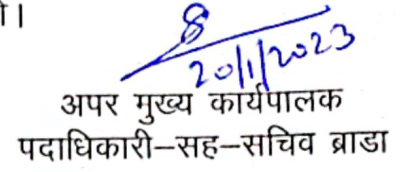 ।
20/1/2023
अपर मुख्य कार्यपालक
पदाधिकारी–सह–सचिव ब्राडा